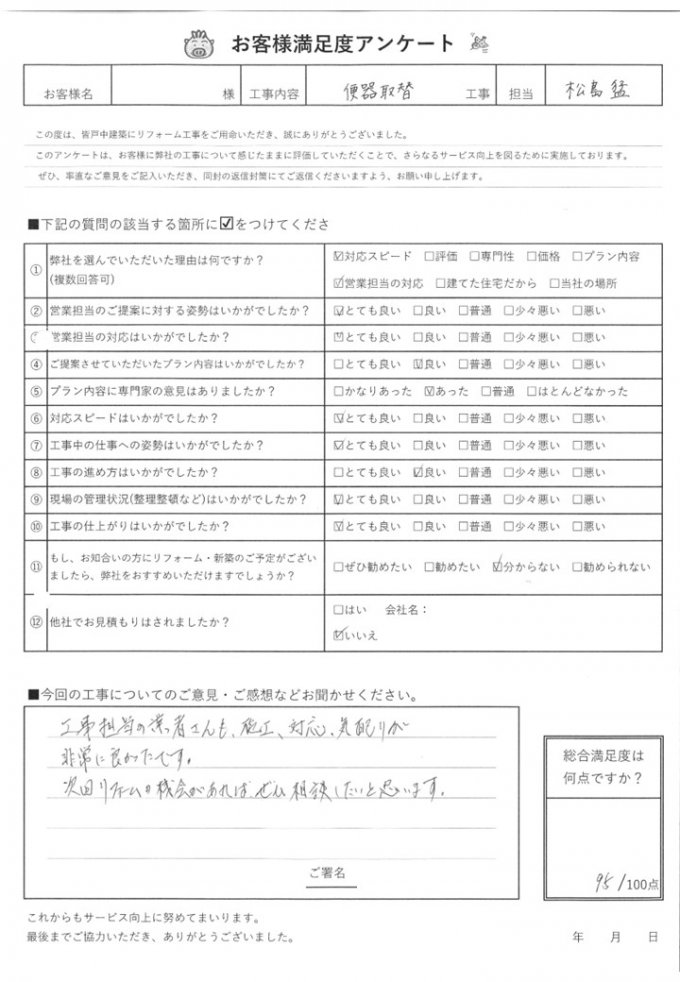 お客様満足度アンケート
お客様名 様 工事内容 便器取替 工事 担当 松島 猛
この度は、皆戸中建築にリフォーム工事をご用命いただき、誠にありがとうございました。
このアンケートは、お客様に弊社の工事について感じたままに評価していただくことで、さらなるサービス向上を図るために実施しております。
ぜひ、率直なご意見をご記入いただき、同封の返信封筒にてご返信くださいますよう、お願い申し上げます。
■下記の質問の該当する箇所に☑をつけてくださ
① 弊社を選んでいただいた理由は何ですか? ☑対応スピード □評価 □専門性 □価格 □プラン内容
(複数回答可) ☑営業担当の対応 □建てた住宅だから □当社の場所
② 営業担当のご提案に対する姿勢はいかがでしたか? ☑とても良い □良い □普通 □少々悪い □悪い
営業担当の対応はいかがでしたか? ☑とても良い □良い □普通 □少々悪い □悪い
④ ご提案させていただいたプラン内容はいかがでしたか? □とても良い ☑良い □普通 □少々悪い □悪い
⑤ プラン内容に専門家の意見はありましたか? □かなりあった ☑あった □普通 □ほとんどなかった
⑥ 対応スピードはいかがでしたか? ☑とても良い □良い □普通 □少々悪い □悪い
⑦ 工事中の仕事への姿勢はいかがでしたか? ☑とても良い □良い □普通 □少々悪い □悪い
⑧ 工事の進め方はいかがでしたか? □とても良い ☑良い □普通 □少々悪い □悪い
⑨ 現場の管理状況(整理整頓など)はいかがでしたか? ☑とても良い □良い □普通 □少々悪い □悪い
⑩ 工事の仕上がりはいかがでしたか? ☑とても良い □良い □普通 □少々悪い □悪い
⑪ もし、お知合いの方にリフォーム・新築のご予定がござい
ましたら、弊社をおすすめいただけますでしょうか? □ぜひ勧めたい □勧めたい ☑分からない □勧められない
⑫ 他社でお見積もりはされましたか? □はい 会社名:
☑いいえ
■今回の工事についてのご意見・ご感想などお聞かせください。
工事担当の業者さんも、施工、対応、気配りが
非常に良かったです。
次回リフォームの機会があれば、ぜひ相談したいと思います。
ご署名
総合満足度は
何点ですか?
95/100点
これからもサービス向上に努めてまいります。
最後までご協力いただき、ありがとうございました。
年 月 日